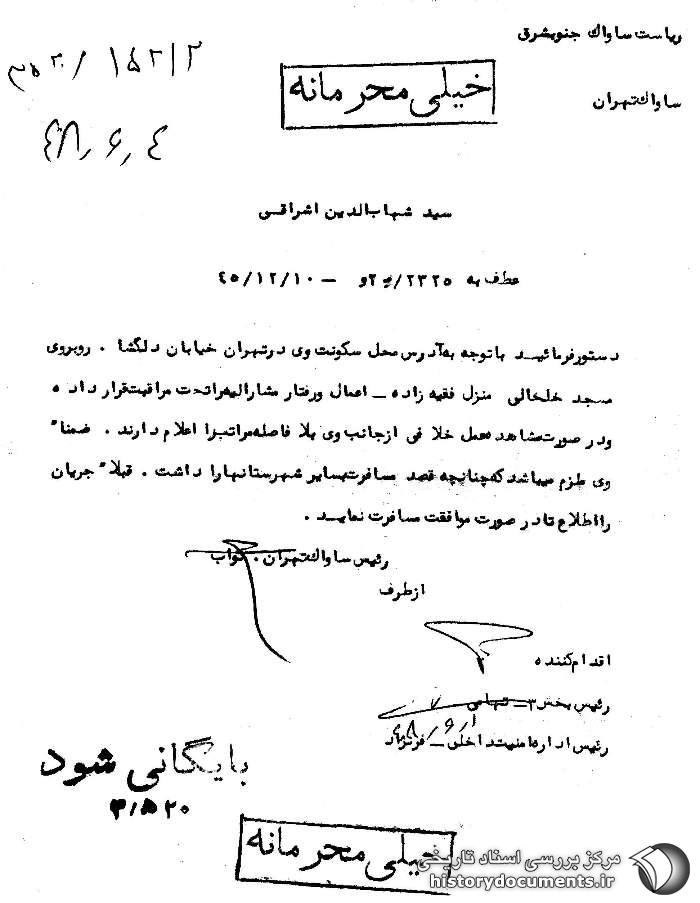 ریاست ساواك جنوبشرق
ساواك تهران
خیلی محرمانه
۴۸٫۶٫۴
سید شهاب الدین اشراقی
عطف به ۲۳۲۵/ ۲و – ۴۵/۱۲/۱۰
دستور فرمائید با توجه به آدرس محل سکونت وی در تهران خیابان دلگشا . روبروی
مسجد خلخالی منزل فقیه زاده – اعمال ورفتار مشارالیه را تحت مراقبت قرار داده
ودر صورت مشاهده عمل خلافی از جانب وی بلافاصله مراتب را اعلام دارند . ضمنا"
وی ملزم میباشد که چنانچه قصد مسافرت بسایر شهرستانها را داشت . قبلا" جریان
را اطلاع تا در صورت موافقت مسافرت نماید .
رئیس ساواك تهران . نواب
از طرف
اقدام کننده
رئیس بخش ۳ – تهامی
رئیس اداره امنیت داخلی –
بایگانی شود
خیلی محرمانه
مرکز بررسی اسناد تاریخی
historydocuments.ir